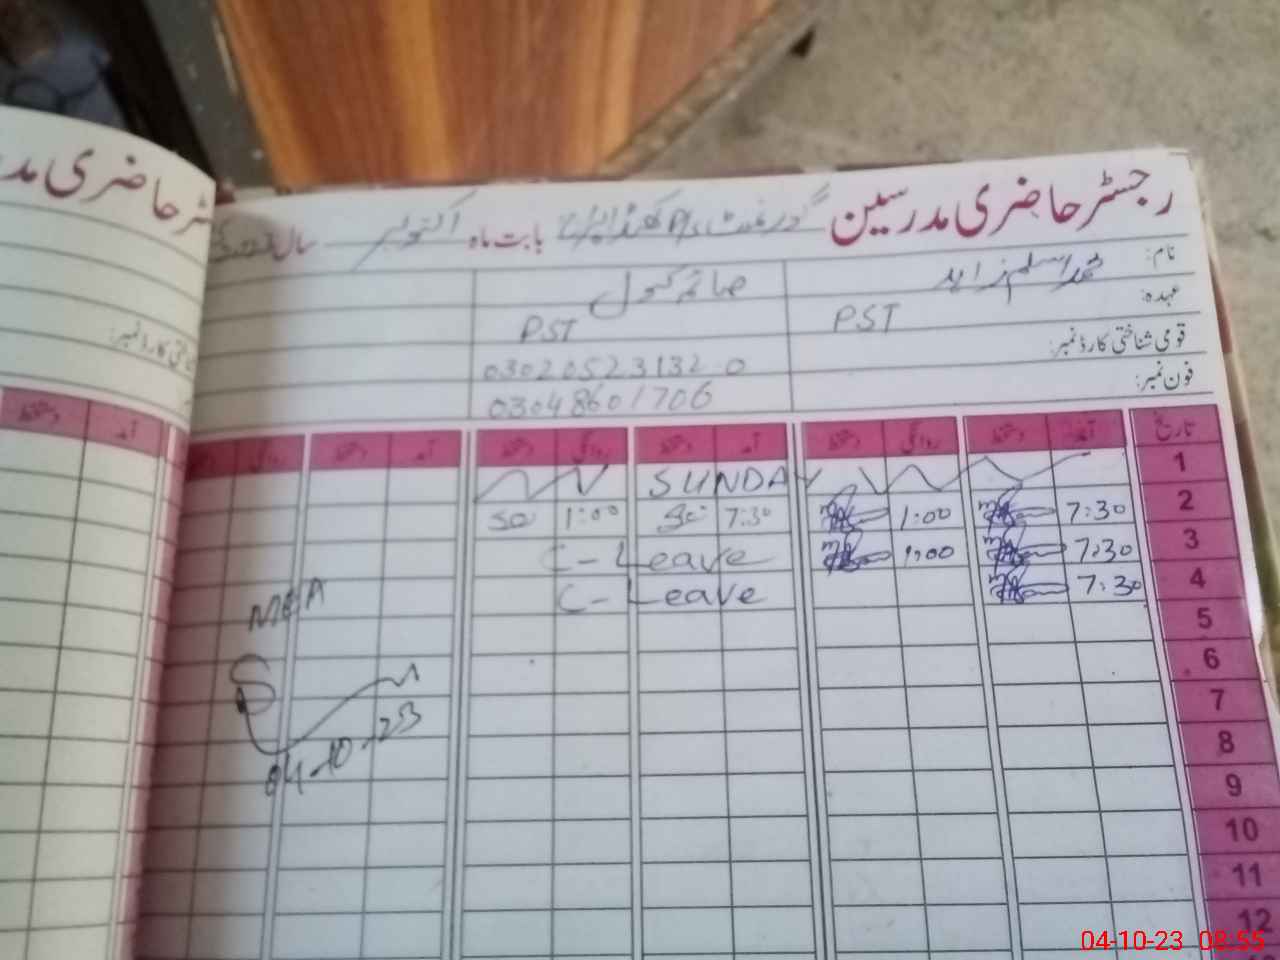 رجسٹر حاضری مدرسین گورنمنٹ بابت ماہ اکتوبر سال
نام: محمد اسلم زاہد صائمہ کنول
عہدہ: PST PST
قومی شناختی کارڈ نمبر: 03020523132-0
فون نمبر: 03048601706
تاریخ آمد دستخط روانگی دستخط آمد دستخط روانگی دستخط آمد دستخط روانگی
1 SUNDAY
2 7:30 1:00 7:30 1:00
3 7:30 1:00 C-Leave
4 7:30 C-Leave
5
6
7
8
9
10
11
12
MEA
04-10-23
حاضری
کارڈ نمبر:
آمد دستخط
04-10-23 08:55